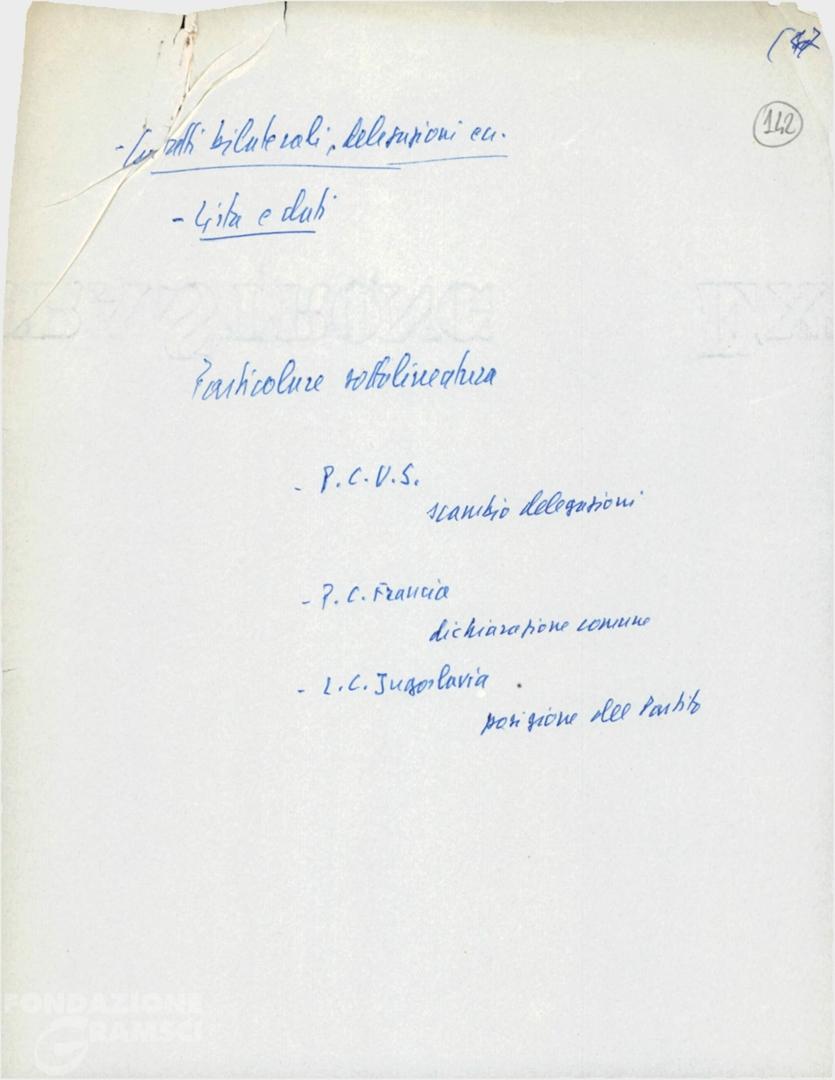 142
- Contatti bilaterali, delegazioni ecc.
- Lista e dati
Particolare sottolineatura
- P.C.U.S.
scambio delegazioni
- P.C. Francia
dichiarazione comune
- L.C. Jugoslavia
posizione del Partito
FONDAZIONE
GRAMSCI